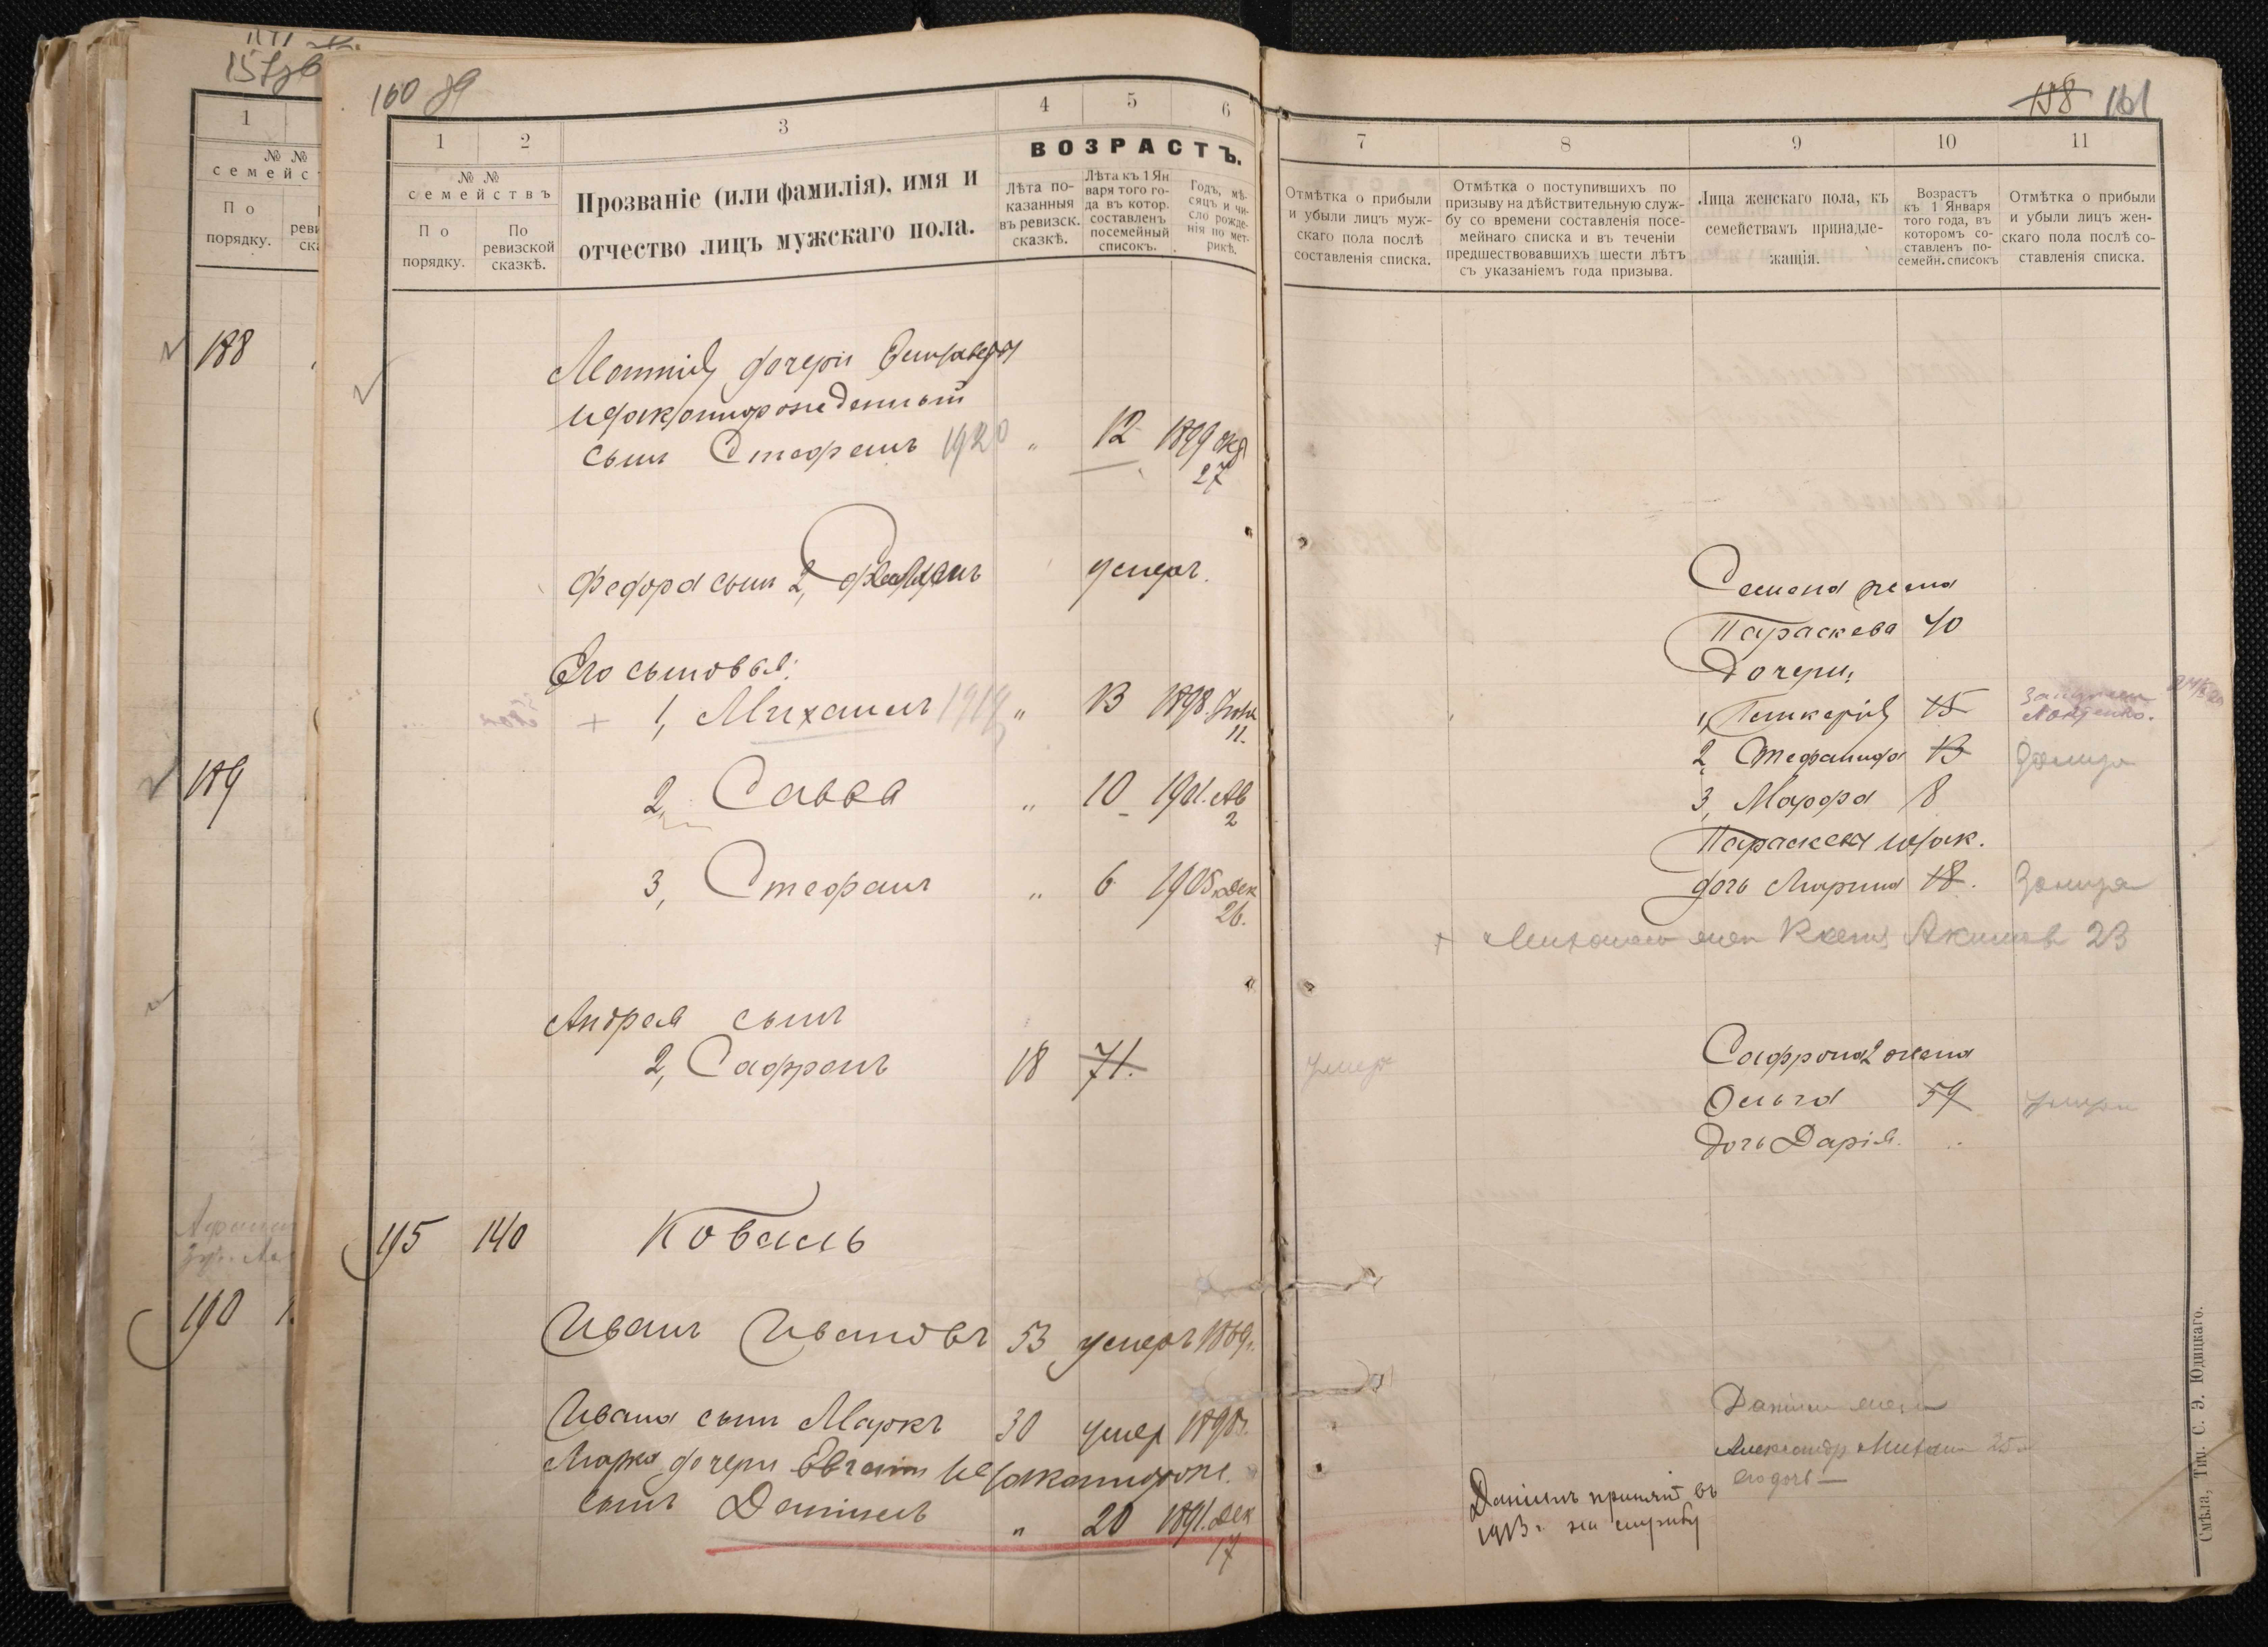 188
189
190
160 89
1 2 3 4 5 6
№ №
семействъ
По порядку.
По ревизской сказкѣ.
Прозваніе (или фамилія), имя и
отчество лицъ мужскаго пола.
ВОЗРАСТЪ.
Лѣта показанныя въ ревизск. сказкѣ.
Лѣта къ 1 Января того года въ котор. составленъ посемейный списокъ.
Годъ, мѣсяцъ и число рожденія по метрикѣ.
дочери
незаконнорожденный
сынъ Стефанъ 1920 " 12 1899 Окт
27
Федора сынъ 2, умеръ.
Его сыновья:
+ 1, Михаилъ 1919 " 13 1898. Іюн
11.
2, Савва " 10 1901. Ав
2
3, Стефанъ " 6 1905 Дек
26.
Андрея сынъ
2, Сафронъ 18 71.
195 140 Коваль
Иванъ Ивановъ 53 умеръ 1869г.
Ивана сынъ Маркъ 30 умер 1898г.
Марка дочери незаконнорож.
сынъ Даніилъ " 20 1891. Дек
17
158 161
7 8 9 10 11
Отмѣтка о прибыли
и убыли лицъ муж-
скаго пола послѣ
составленія списка.
Отмѣтка о поступившихъ по
призыву на дѣйствительную служ-
бу со времени составленія посе-
мейнаго списка и въ теченіи
предшествовавшихъ шести лѣтъ
съ указаніемъ года призыва.
Лица женскаго пола, къ
семействамъ принадле-
жащія.
Возрастъ
къ 1 Января
того года, въ
которомъ со-
ставленъ по-
семейн. списокъ
Отмѣтка о прибыли
и убыли лицъ жен-
скаго пола послѣ со-
ставленія списка.
Семена жена
Параскева 40
Дочери:
1, Гликерія 15
2, Стефанида 13
3, Марфа 8
Параскевы незак.
дочь Марина 18.
+ Михаила жен Ксенія 23
умеръ
Сафрона 2 жена
Ольга 59 умерла
дочь Дарія. "
Даніила жена
Александр 25
его дочь —
Даніилъ принятъ въ
1913 г. на службу
Смѣла, Тип. С. Э. Юдицкаго.